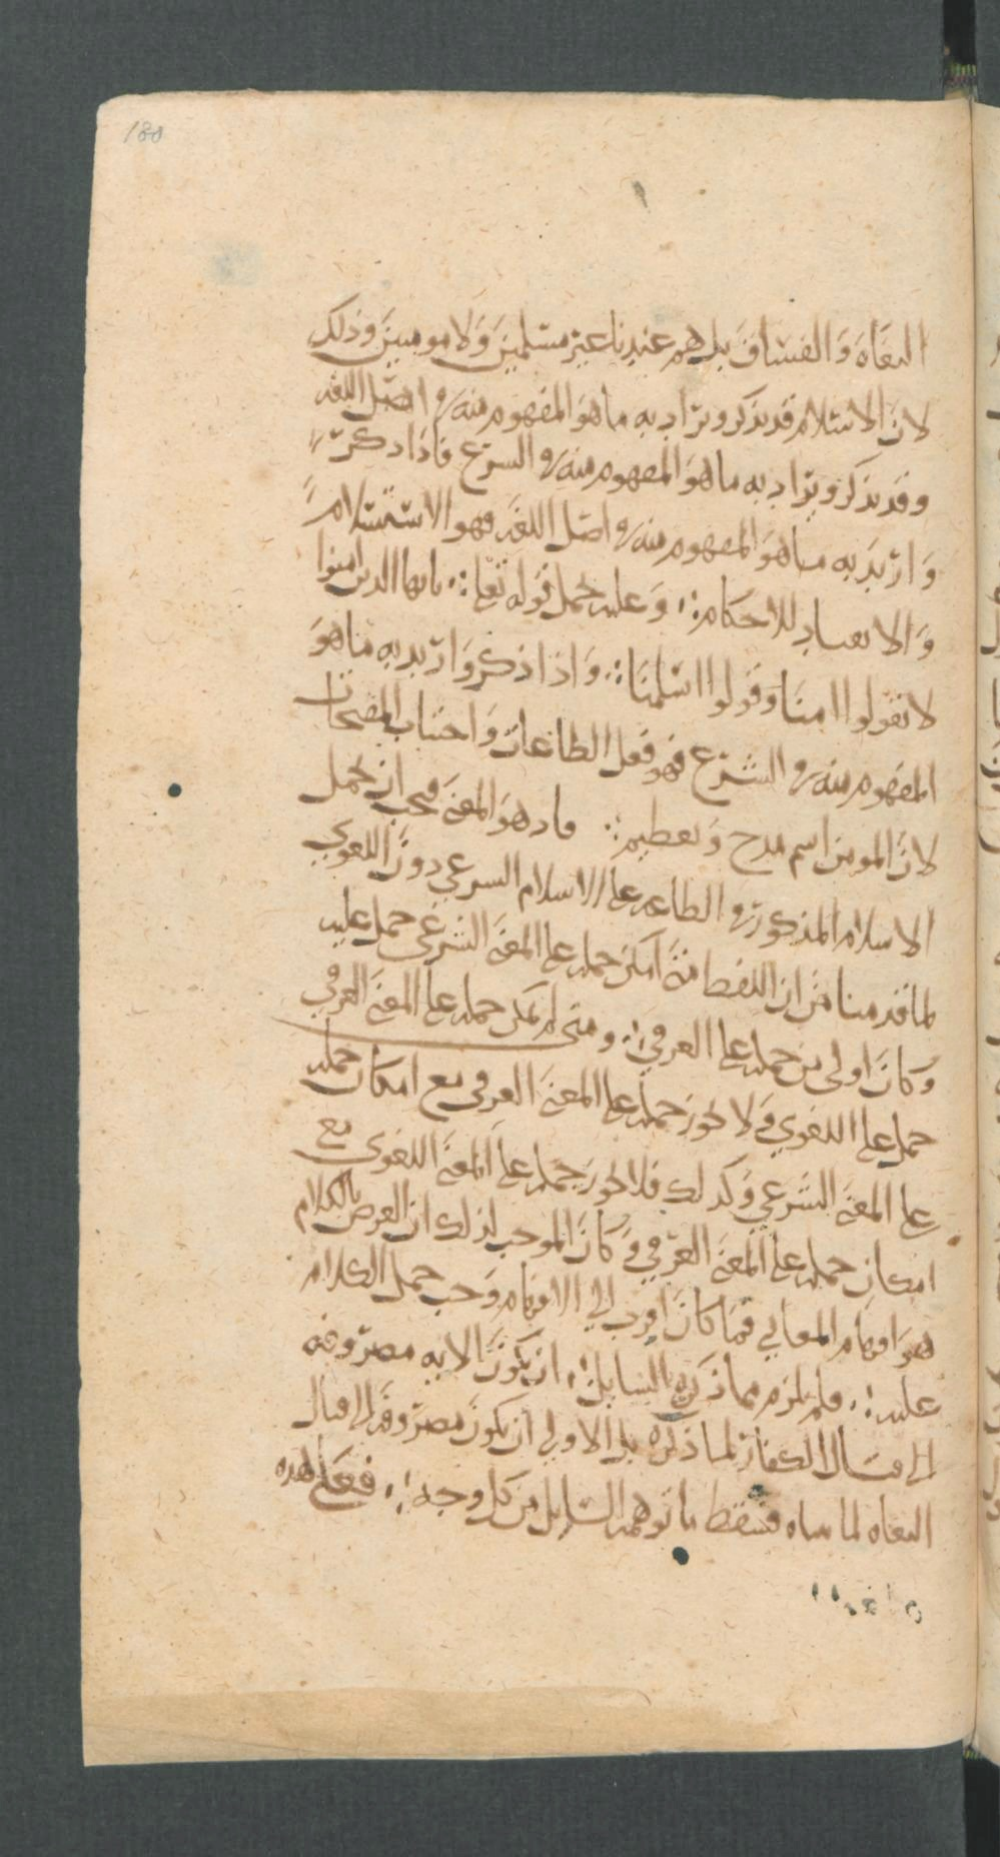 188
البغاة والفساق بل هم عندنا غير مسلمين ولا مومنين وذلك
لان الاسلام قد يذكر ويراد به ما هو المفهوم منه في اصل اللغه
وقد يذكر ويراد به ما هو المفهوم منه في الشرع فاذا ذكر
واريد به ما هو المفهوم منه في اصل اللغه فهو الاستسلام
والانقياد للاحكام وعليه حمل قوله تعلى يا يها الذين امنوا
لا تقولوا امنا وقولوا اسلمنا واذا ذكر واريد به ما هو
المفهوم منه في الشرع فهو فعل الطاعات واجتناب المقبحات
لان المومن اسم مدح وتعظيم هو المعنى فيجب ان يحمل
الاسلام المذكور في على الاسلام الشرعي دون اللغوي
لما قدمنا من ان اللفظ متى امكن حمله على المعنى الشرعي حمل عليه
وكان اولى من حمله على العرفي ومتى لم يمكن حمله على المعنى العرفي
حمل على اللغوي ولا يجوز حمله على المعنى العرفي مع امكان حمله
على المعنى الشرعي وكذلك فلا يجوز حمله على المعنى اللغوي مع
امكان حمله على المعنى العرفي وكان الموجب لذلك ان الغرض بالكلام
هو افهام المعاني فما كان اقرب الى الافهام وجب حمل الكلام
عليه فلم يلزم مما ذكره السايل ان يكون الايه مصروفه
الى قتال الكفار لما ذكره بل الاولى ان يكون مصروفه الى قتال
البغاه لما بيناه فسقط ما توهمه السايل من كل وجه فعلى هذه